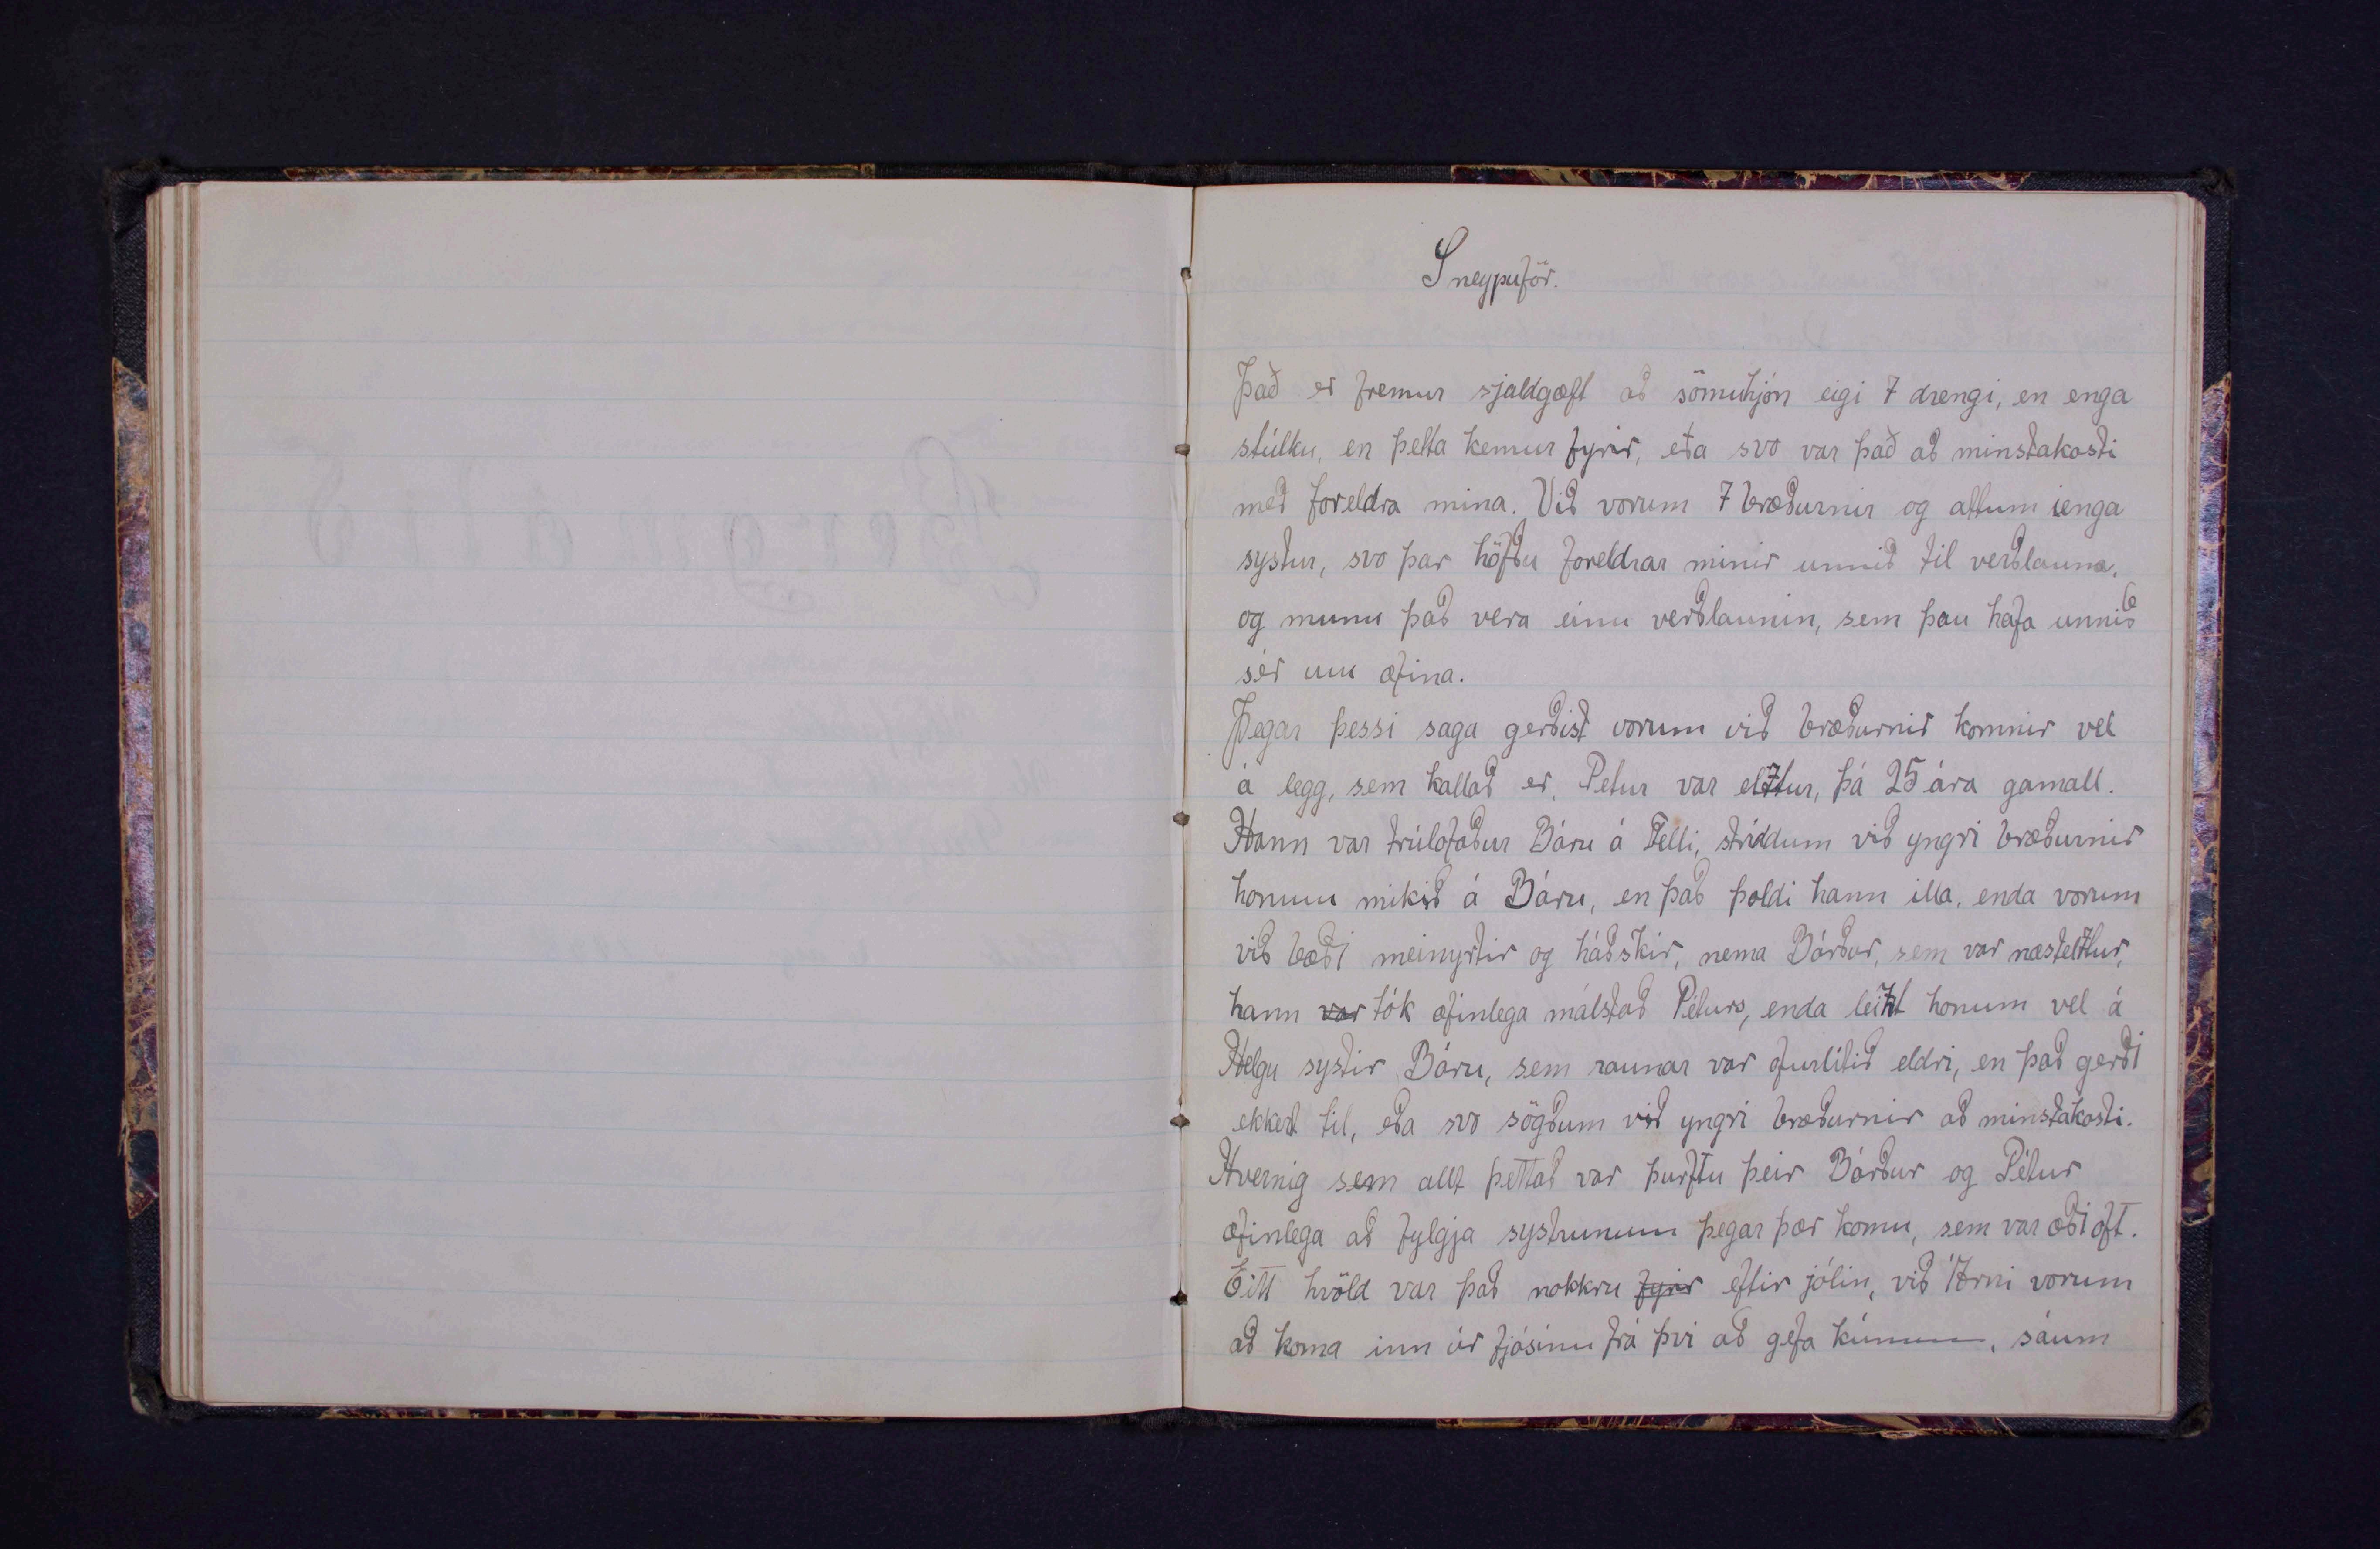 Sneypuför.
Það er fremur sjaldgæft að sömuhjón eigi 7 drengi, en enga
stúlku, en þetta kemur fyrir, eða svo var það að minstakosti
með foreldra mina. Við vorum 7 bræðurnir og attum enga
systur, svo þar höfðu foreldrar minir unnið til verðlauna,
og munu það vera einu verðlaunin, sem þau hafa unnið
sér um æfina.
Þegar þessi saga gerðist vorum við bræðurnir komnir vel
á legg, sem kallað er. Petur var elztur, þá 25 ára gamall.
Hann var trúlofaður Báru á Felli, striddum við yngri bræðurnir
honum mikið á Báru, en það þoldi hann illa, enda vorum
við bæði meinyrtir og háðskir, nema Bárður, sem var næstelztur,
hann var tók æfinlega málstað Péturs, enda leizt honum vel á
Helgu systir Báru, sem raunar var ofurlítið eldri, en það gerði
ekkert til, eða svo sögðum við yngri bræðurnir að minstakosti.
Hvernig sem allt þettað var þurftu þeir Bárður og Pétur
æfinlega að fylgja systrunum þegar þær komu, sem var æði oft.
Eitt kvöld var það nokkru fyrir eftir jólin, við Árni vorum
að koma inn úr fjósinu frá þvi að gefa kúnum, sáum